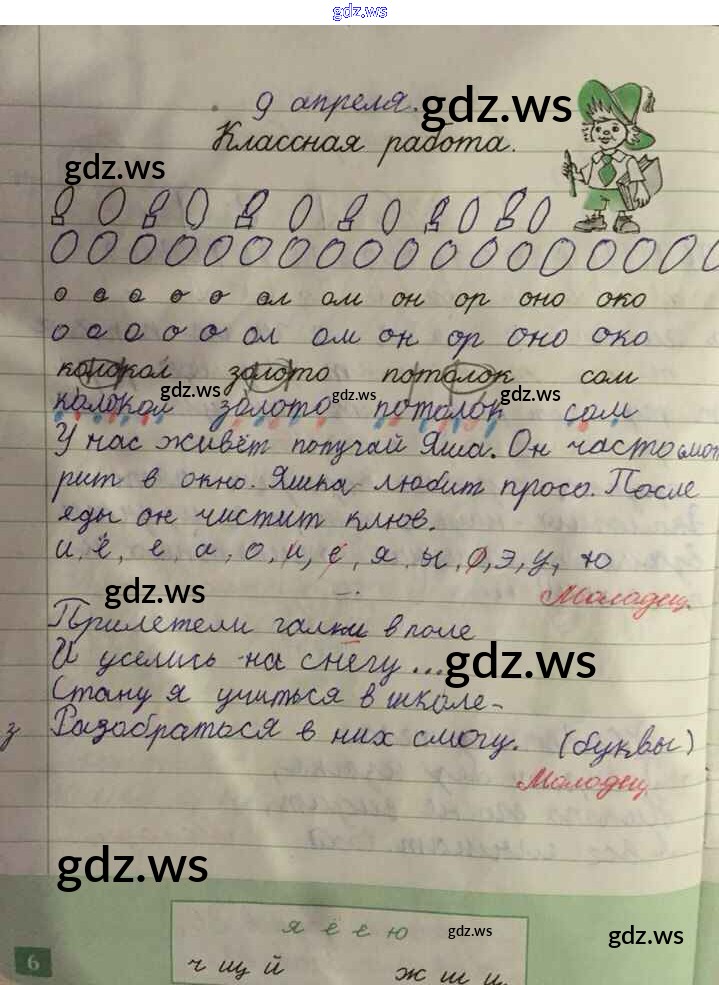 gdz.ws
9 апреля.
gdz.ws
Классная работа.
gdz.ws
о а а о о ол ом он ор оно око
о а а о о ол ом он ор оно око
колокол золото потолок сом
gdz.ws gdz.ws gdz.ws
колокол золото потолок сом
У нас живёт попугай Яша. Он часто смот
рит в окно. Яшка любит просо. После
еды он чистит клюв.
и, ё, е, а, о, и, е, я, ы, о, э, у, ю
gdz.ws
Молодец.
Прилетели галки в поле
И уселись на снегу...
gdz.ws
Стану я учиться в школе-
з Разобраться в них смогу. (буквы)
Молодец
gdz.ws
я ё е ю
gdz.ws
gdz.ws
6
ч щ й ж ш ц